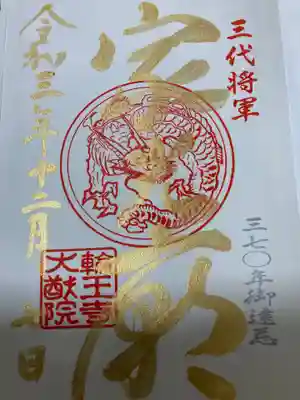 三代將軍
三七〇年御遠忌
家光廟
令和三年十二月 日
輪王寺
大猷院